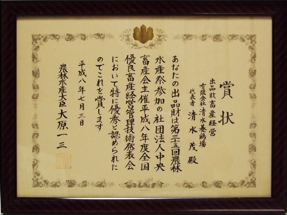 賞状
出品財 畜産経営
有限会社 清水養鶏場
代表者 清水 茂殿
あなたの出品財は第三五回農林
水産祭参加の社団法人中央
畜産会主催平成八年度全国
優良畜産経営管理技術発表会
において特に優秀と認められた
のでこれを賞します
平成八年七月三日
農林水産大臣 大原一三